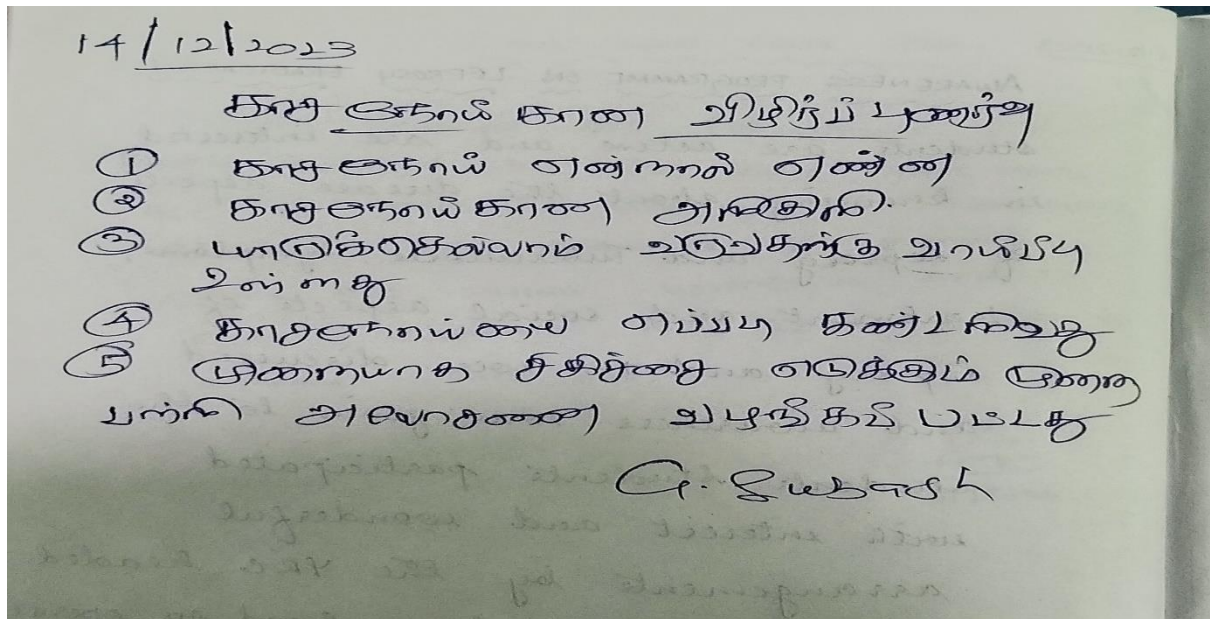 14/12/2023
காச நோய் கான விழிர்ப்புணர்வு
① காசநோய் என்றால் எண்ன
② காசநோய் கான அறிகுறி.
③ யாருக்கெல்லாம் வருவதற்கு வாய்ப்பு
உள்ளது
④ காசநோய்யை எப்படி கண்டறிவது
⑤ முறையாக சிகிச்சை எடுக்கும் முறை
பற்றி அலோசனை வழங்கப் பட்டது
G.